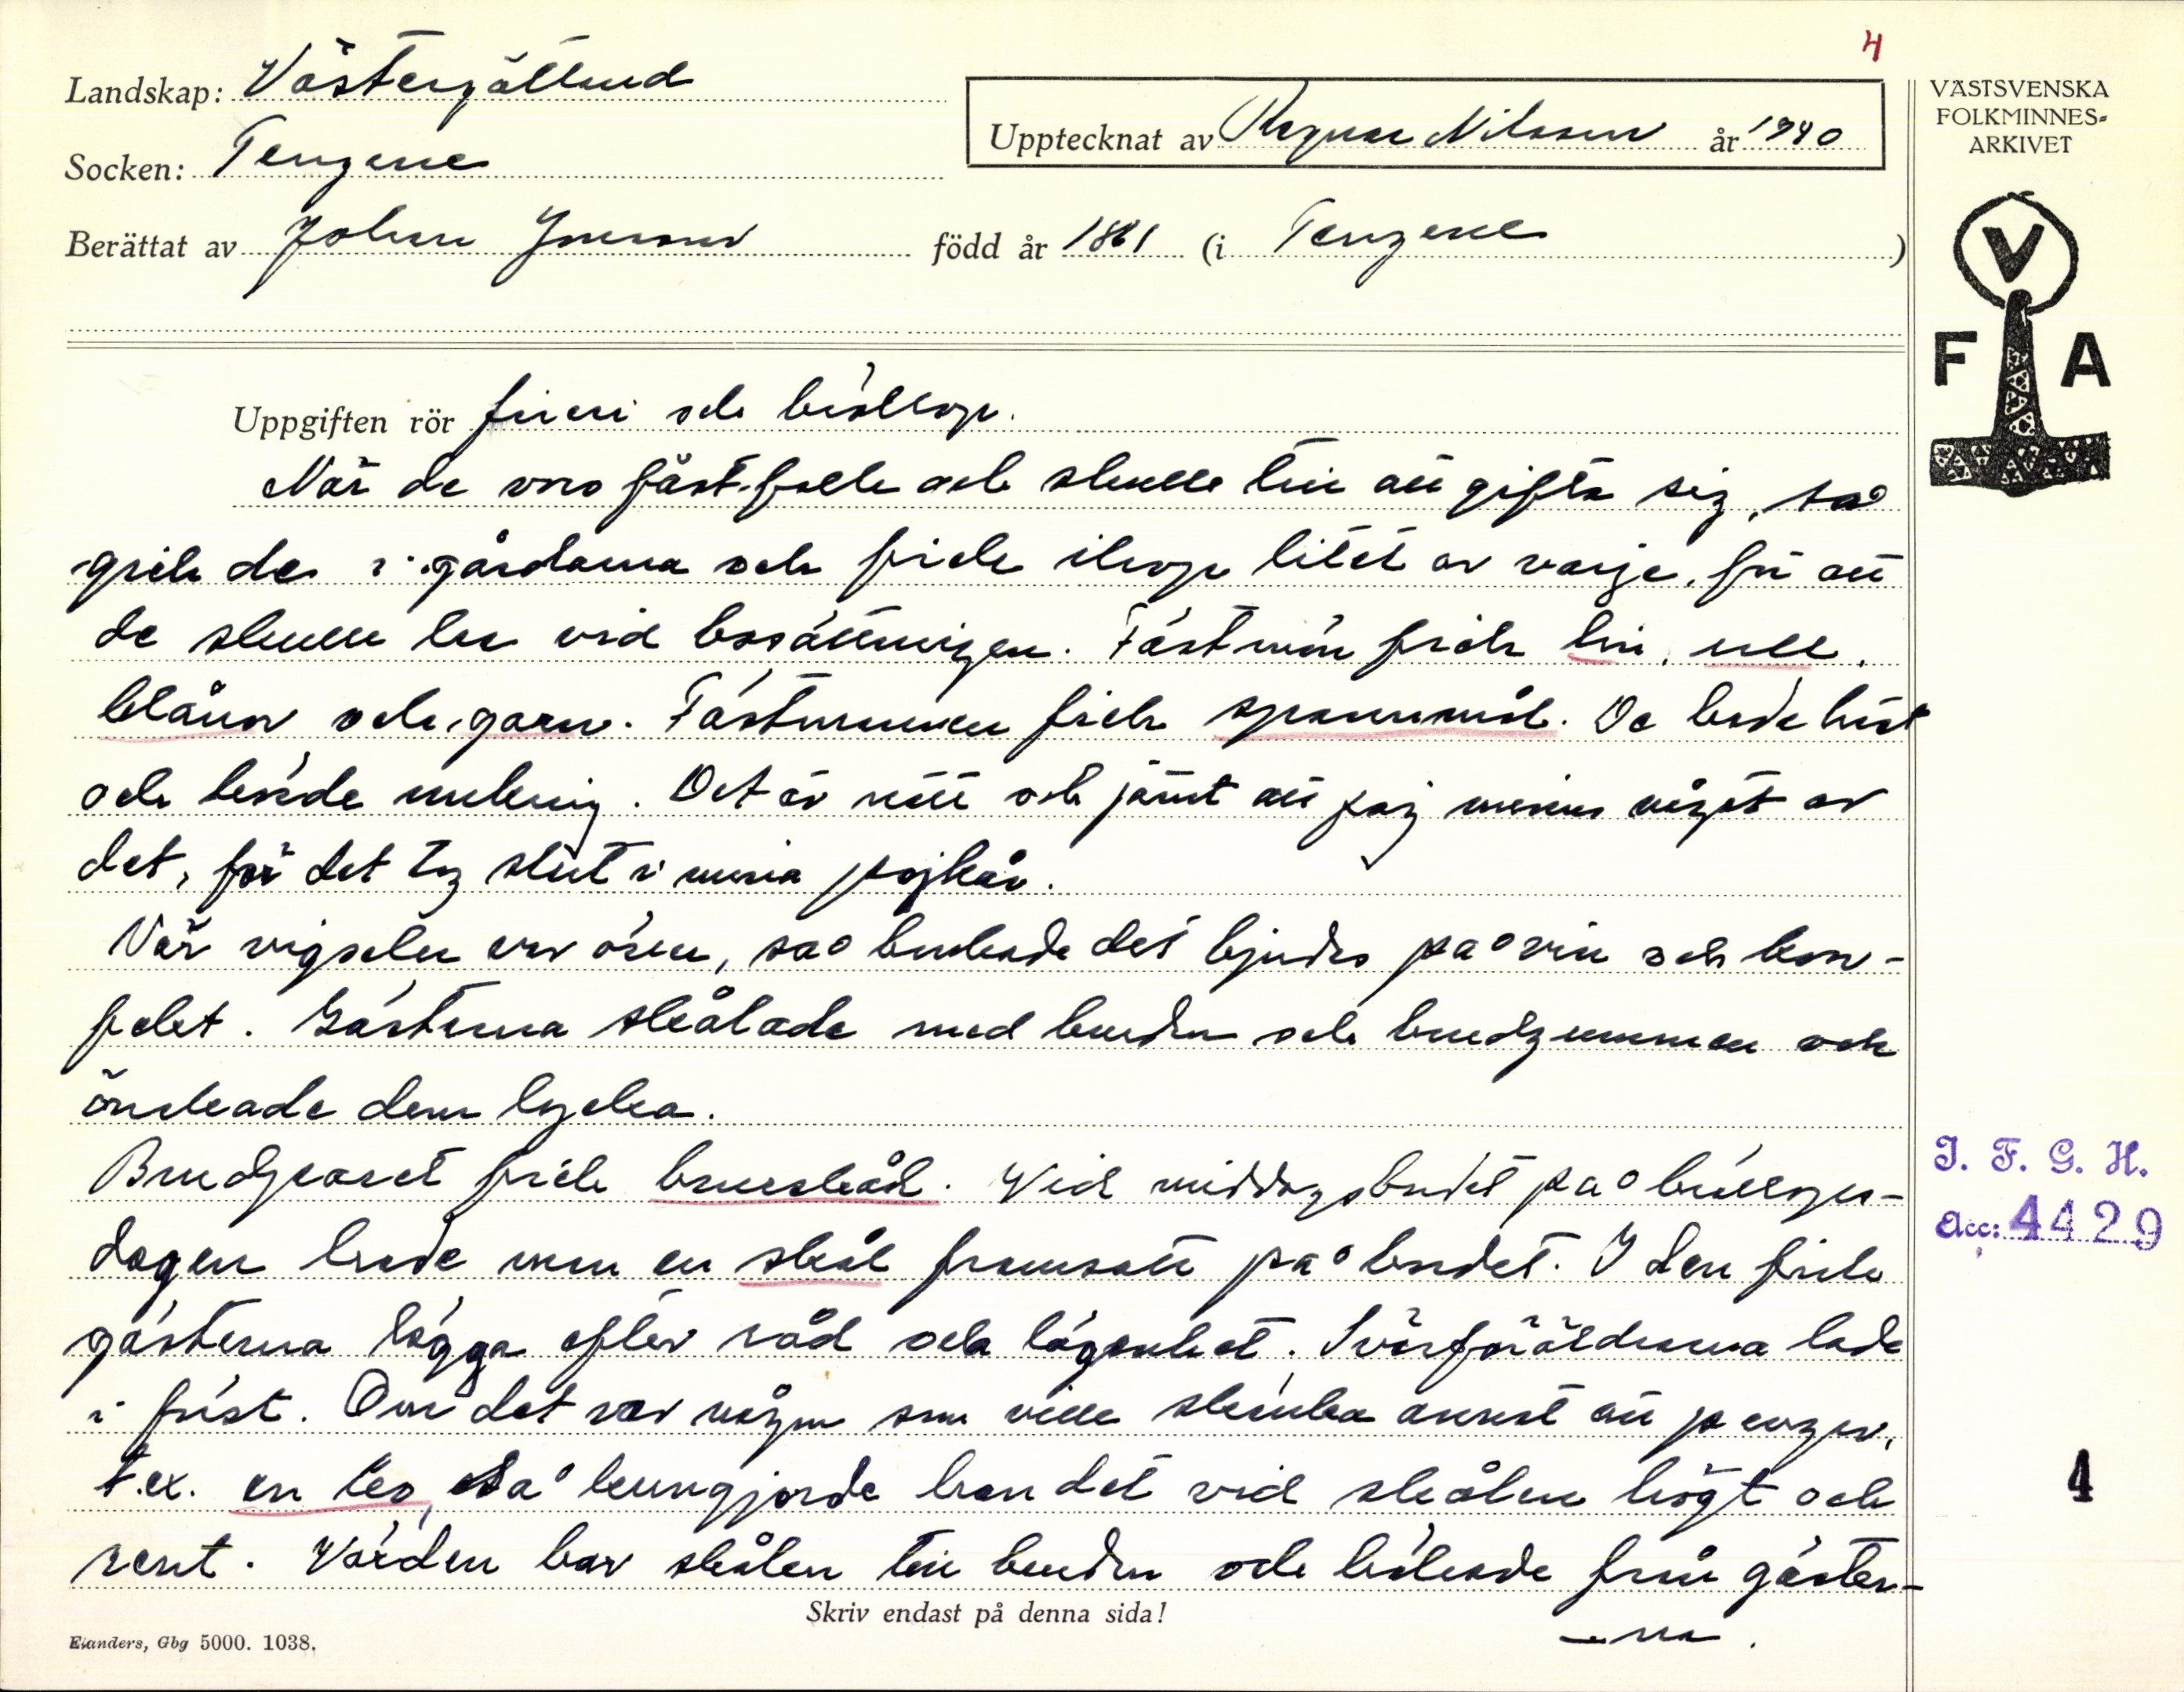 4
Landskap: Västergötland
Socken: Tengene
Upptecknat av Ragnar Nilsson år 1940
Berättat av Johan Jonsson född år 1861 (i Tengene)
VÄSTSVENSKA
FOLKMINNES-
ARKIVET
V
F A
Uppgiften rör frieri och bröllop.
När de voro fäst.folk och skulle till att gifta sig, så
gick de i gårdarna och fick ihop litet av varje, för att
de skulle ha vid bosättningen. Fästmön fick lin, ull,
blånor och garn. Fästmannen fick spannmål. De hade häst
och körde omkring. Det är nätt och jämt att jag minns något av
det, för det tog slut i mina pojkår.
När vigseln var över, så brukade det bjudas på vin och kon-
fekt. Gästerna skålade med bruden och brudgummen och
önskade dem lycka.
Brudparet fick bruskål. Vid middagsbordet på bröllops-
dagen hade man en skål framsatt på bordet. I den fick
gästerna lägga efter råd och lägenhet. Svärföräldrarna lade
i först. Om det var någon som ville skänka annat än pengar,
t.ex. en ko, så kungjorde han det vid skålen högt och
rent. Värden bar skålen till bruden och hälsade från gäster-
-na.
Skriv endast på denna sida!
Elanders, Gbg 5000. 1038.
I. F. G. H.
Acc: 4429
4